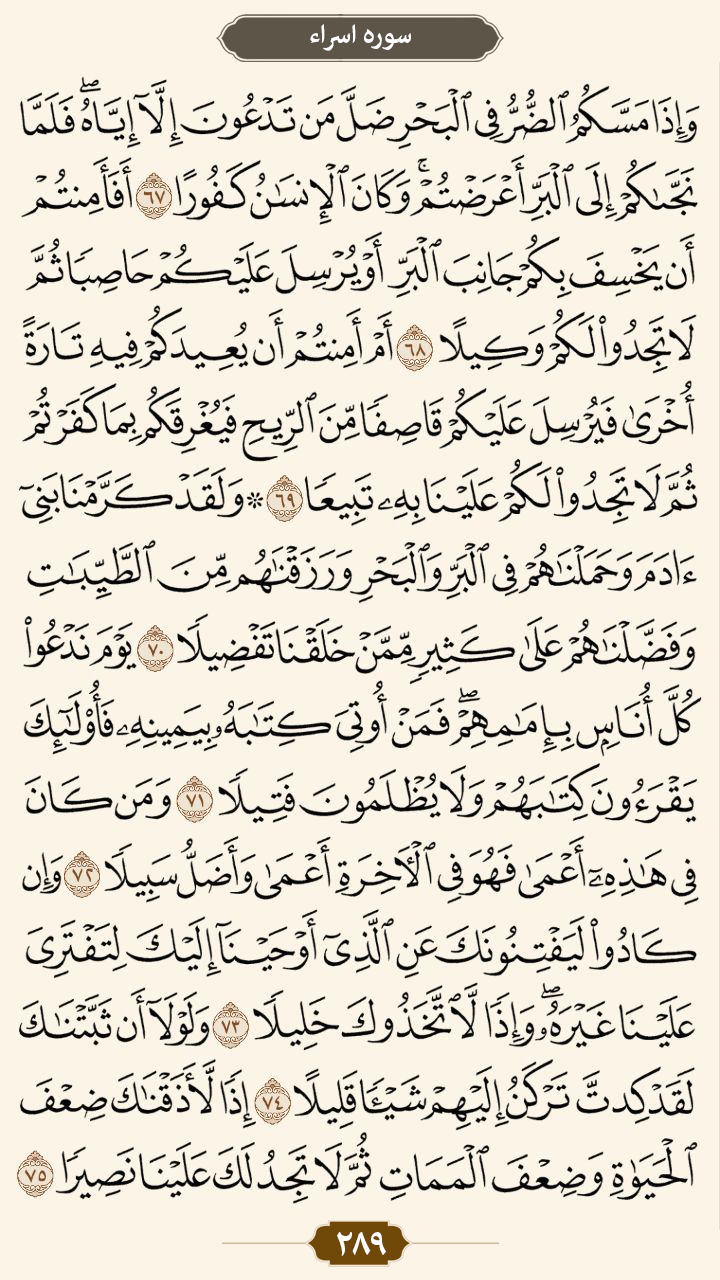 سوره اسراء
وَإِذَا مَسَّكُمُ ٱلضُّرُّ فِي ٱلۡبَحۡرِ ضَلَّ مَن تَدۡعُونَ إِلَّآ إِيَّاهُۖ فَلَمَّا
نَجَّىٰكُمۡ إِلَى ٱلۡبَرِّ أَعۡرَضۡتُمۡۚ وَكَانَ ٱلۡإِنسَٰنُ كَفُورًا ٦٧ أَفَأَمِنتُمۡ
أَن يَخۡسِفَ بِكُمۡ جَانِبَ ٱلۡبَرِّ أَوۡ يُرۡسِلَ عَلَيۡكُمۡ حَاصِبٗا ثُمَّ
لَا تَجِدُواْ لَكُمۡ وَكِيلًا ٦٨ أَمۡ أَمِنتُمۡ أَن يُعِيدَكُمۡ فِيهِ تَارَةً
أُخۡرَىٰ فَيُرۡسِلَ عَلَيۡكُمۡ قَاصِفٗا مِّنَ ٱلرِّيحِ فَيُغۡرِقَكُم بِمَا كَفَرۡتُمۡ
ثُمَّ لَا تَجِدُواْ لَكُمۡ عَلَيۡنَا بِهِۦ تَبِيعٗا ٦٩ ۞ وَلَقَدۡ كَرَّمۡنَا بَنِيٓ
ءَادَمَ وَحَمَلۡنَٰهُمۡ فِي ٱلۡبَرِّ وَٱلۡبَحۡرِ وَرَزَقۡنَٰهُم مِّنَ ٱلطَّيِّبَٰتِ
وَفَضَّلۡنَٰهُمۡ عَلَىٰ كَثِيرٖ مِّمَّنۡ خَلَقۡنَا تَفۡضِيلٗا ٧٠ يَوۡمَ نَدۡعُواْ
كُلَّ أُنَاسِۭ بِإِمَٰمِهِمۡۖ فَمَنۡ أُوتِيَ كِتَٰبَهُۥ بِيَمِينِهِۦ فَأُوْلَٰٓئِكَ
يَقۡرَءُونَ كِتَٰبَهُمۡ وَلَا يُظۡلَمُونَ فَتِيلٗا ٧١ وَمَن كَانَ
فِي هَٰذِهِۦٓ أَعۡمَىٰ فَهُوَ فِي ٱلۡأٓخِرَةِ أَعۡمَىٰ وَأَضَلُّ سَبِيلٗا ٧٢ وَإِن
كَادُواْ لَيَفۡتِنُونَكَ عَنِ ٱلَّذِيٓ أَوۡحَيۡنَآ إِلَيۡكَ لِتَفۡتَرِيَ
عَلَيۡنَا غَيۡرَهُۥۖ وَإِذٗا لَّٱتَّخَذُوكَ خَلِيلٗا ٧٣ وَلَوۡلَآ أَن ثَبَّتۡنَٰكَ
لَقَدۡ كِدتَّ تَرۡكَنُ إِلَيۡهِمۡ شَيۡـٔٗا قَلِيلًا ٧٤ إِذٗا لَّأَذَقۡنَٰكَ ضِعۡفَ
ٱلۡحَيَوٰةِ وَضِعۡفَ ٱلۡمَمَاتِ ثُمَّ لَا تَجِدُ لَكَ عَلَيۡنَا نَصِيرٗا ٧٥
٢٨٩